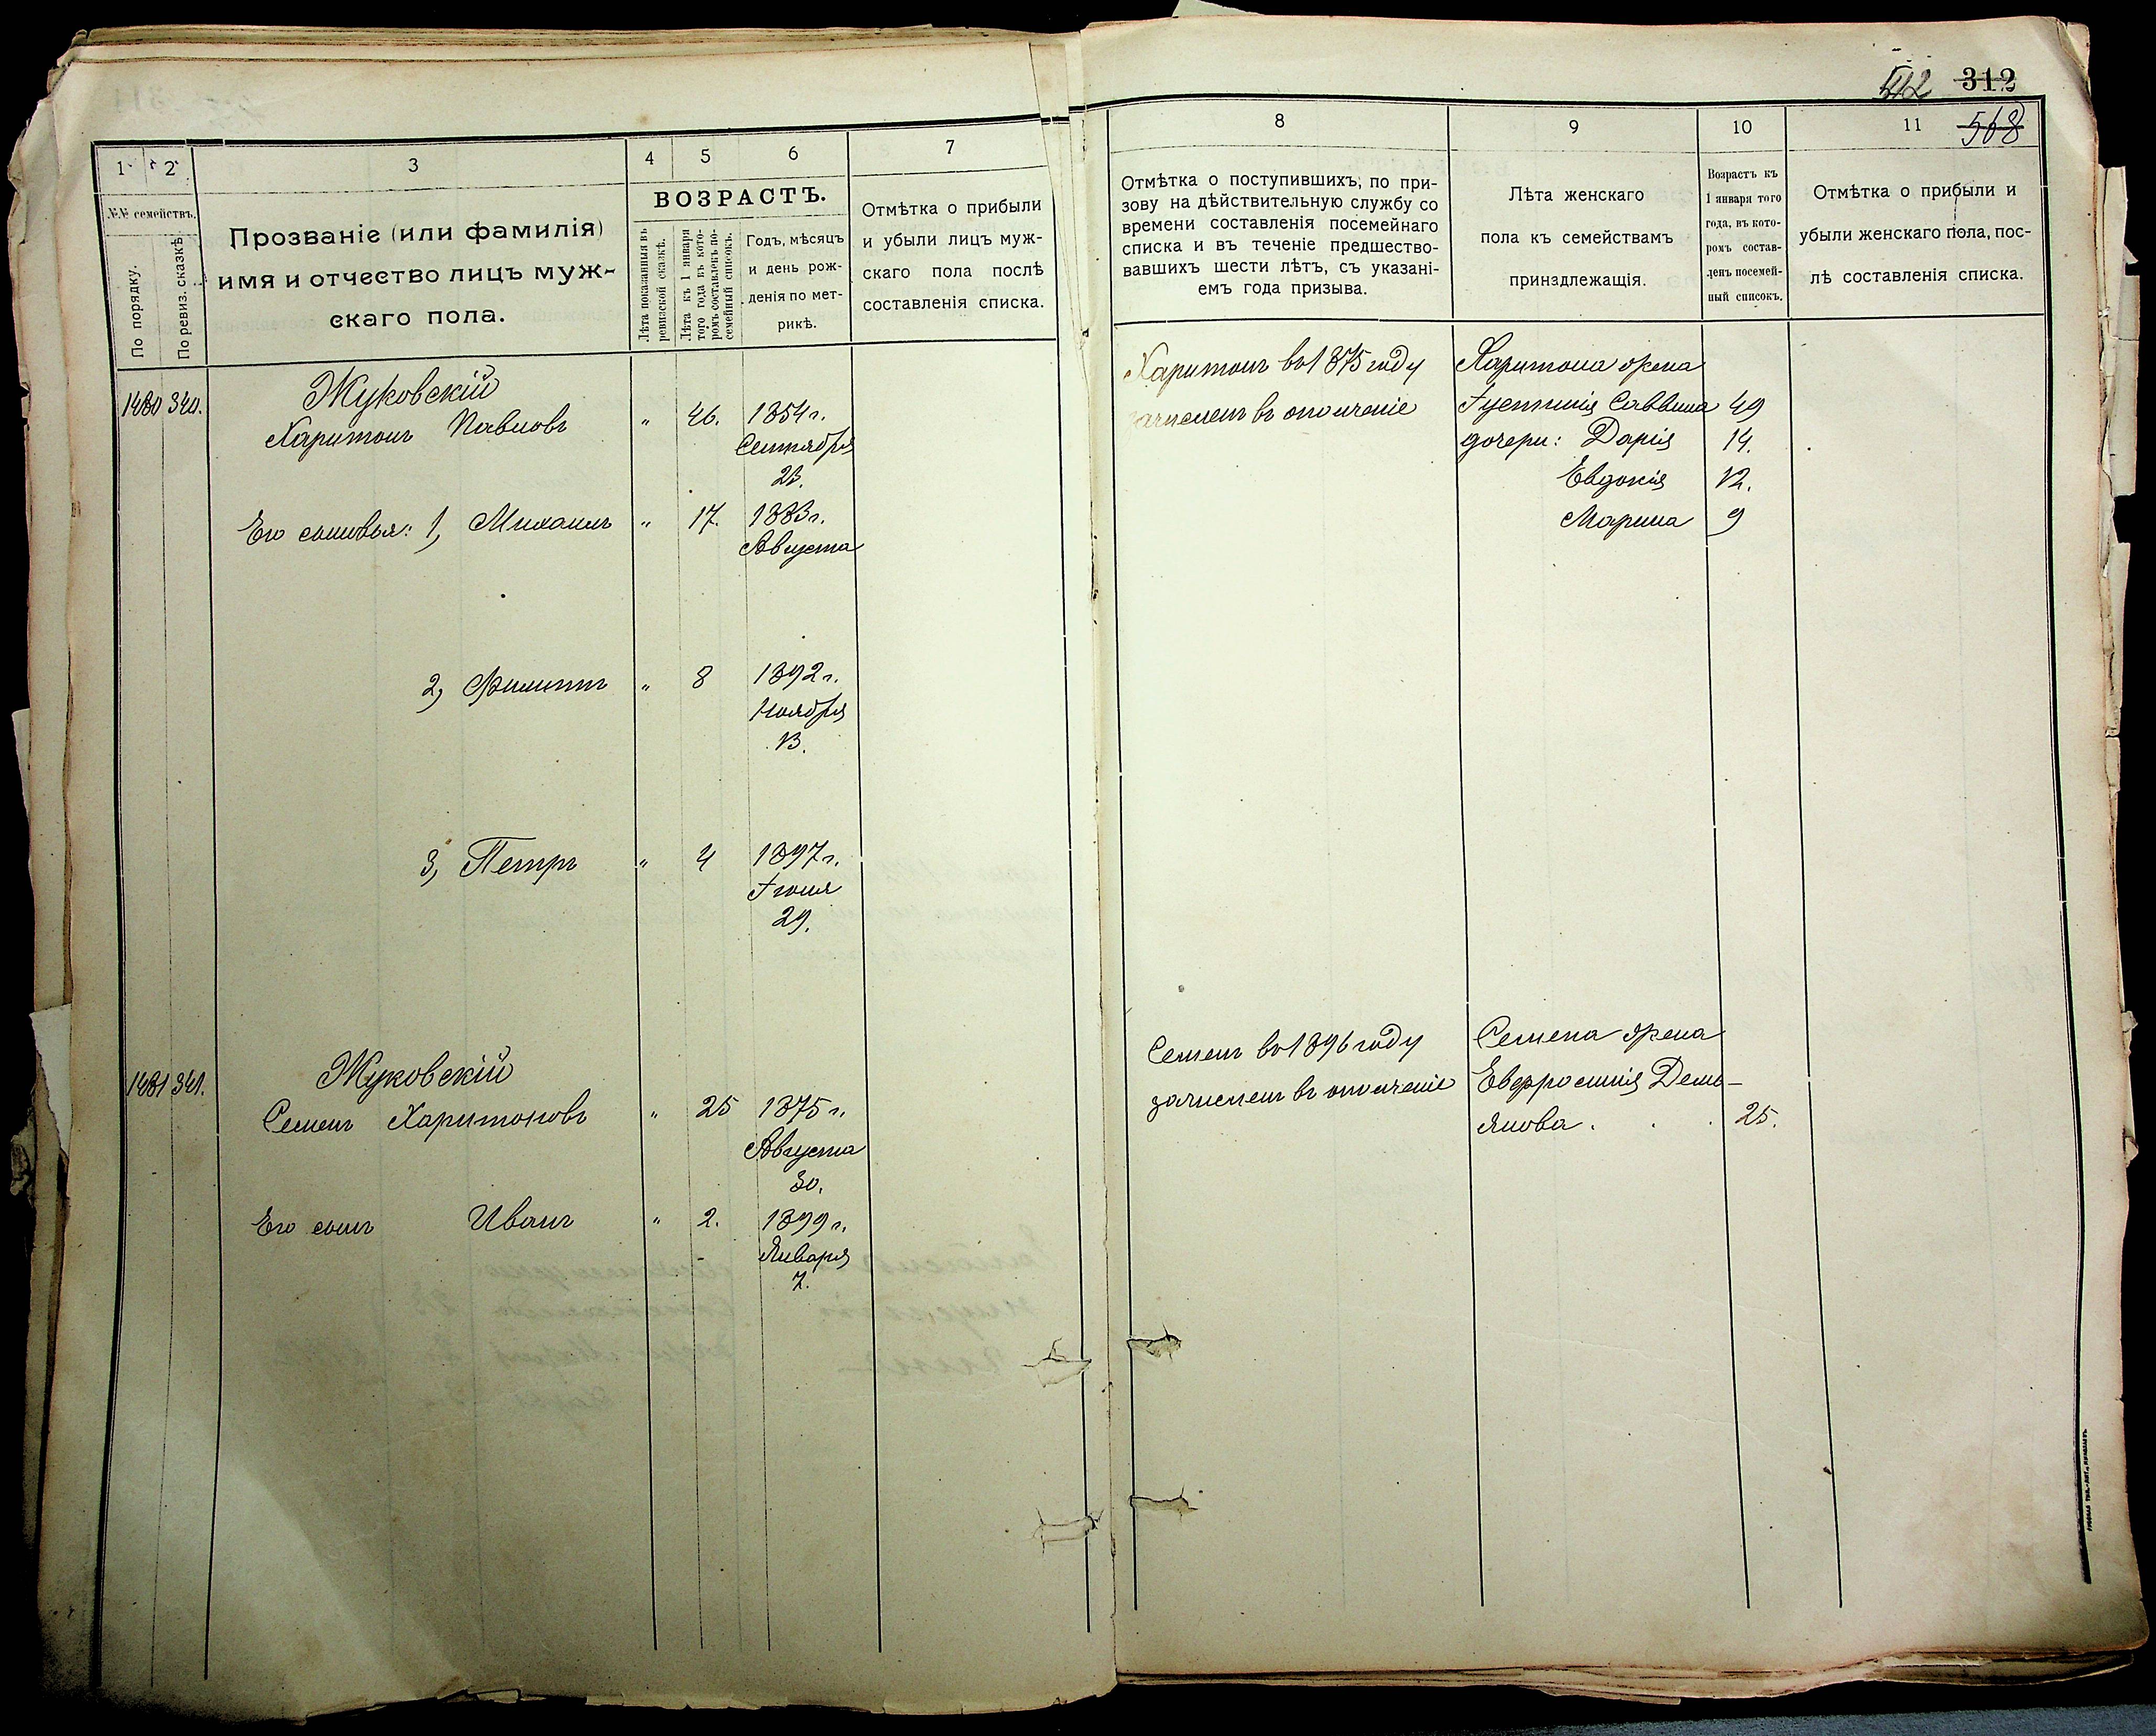 542 312
568
1 2 3 4 5 6 7
№№ семействъ.
По порядку.
По ревиз. сказкѣ.
Прозваніе (или фамилія)
имя и отчество лицъ муж-
скаго пола.
ВОЗРАСТЪ.
Лѣта показанныя въ
ревизской сказкѣ.
Лѣта къ 1 января
того года въ кото-
ромъ составленъ по-
семейный списокъ.
Годъ, мѣсяцъ
и день рож-
денія по мет-
рикѣ.
Отмѣтка о прибыли
и убыли лицъ муж-
скаго пола послѣ
составленія списка.
1480 340. Жуковскій
Харитонъ Павловъ " 46. 1854 г.
Сентября
23.
Его сыновья: 1, Михаилъ " 17. 1883 г.
Августа
2, Филиппъ " 8 1892 г.
Ноября
13.
3, Петръ " 4 1897 г.
Іюня
29.
1481 341. Жуковскій
Семенъ Харитоновъ " 25 1875 г.
Августа
30.
Его сынъ Иванъ " 2. 1899 г.
Января
7.
8 9 10 11
Отмѣтка о поступившихъ, по при-
зову на дѣйствительную службу со
времени составленія посемейнаго
списка и въ теченіе предшество-
вавшихъ шести лѣтъ, съ указані-
емъ года призыва.
Лѣта женскаго
пола къ семействамъ
принадлежащія.
Возрастъ къ
1 января того
года, въ кото-
ромъ состав-
ленъ посемей-
ный списокъ.
Отмѣтка о прибыли и
убыли женскаго пола, пос-
лѣ составленія списка.
Харитонъ въ 1875 году Харитона жена
зачисленъ въ ополченіе Іустинія Саввина 49
дочери: Дарія 14.
Евдокія 12.
Марина 9
Семенъ въ 1896 году Семена жена
зачисленъ въ ополченіе Евфросинія Демь-
янова . . . 25.